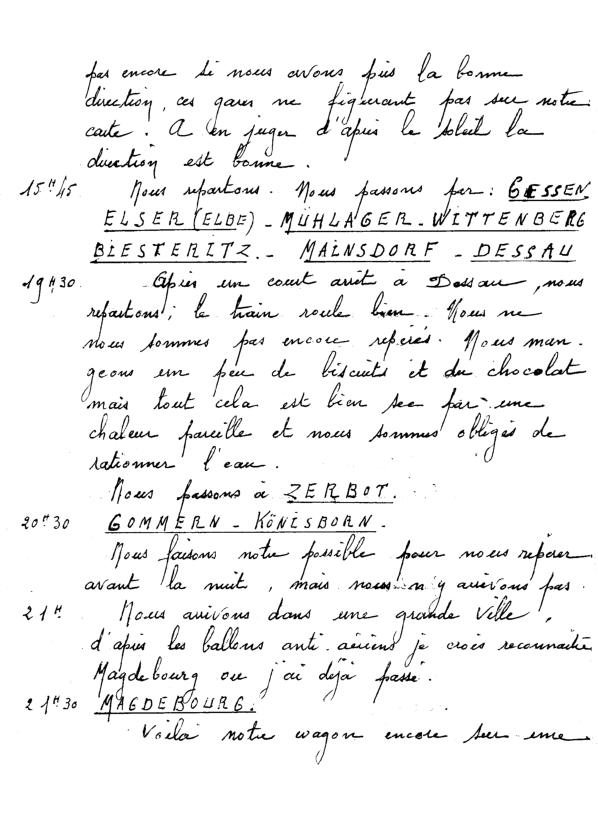 pas encore si nous avons pris la bonne
direction, ces gares ne figurant pas sur notre
carte. A en juger d'après le soleil la
direction est bonne.
15H45 Nous repartons. Nous passons par : GESSEN
ELSER (ELBE) - MÜHLAGER - WITTENBERG
BIESTERITZ. - MAINSDORF - DESSAU
19H30 Après un court arrêt à Dessau, nous
repartons ; le train roule bien. Nous ne
nous sommes pas encore repérés. Nous man-
geons un peu de biscuits et du chocolat
mais tout cela est bien sec par une
chaleur pareille et nous sommes obligés de
rationner l'eau.
Nous passons à ZERBOT.
20H30 GOMMERN - KÖNISBORN.
Nous faisons notre possible pour nous repérer
avant la nuit, mais nous n'y arrivons pas.
21H Nous arrivons dans une grande ville,
d'après les ballons anti-aériens je crois reconnaître
Magdebourg ou j'ai déjà passé.
21H30 MAGDEBOURG.
Voilà notre wagon encore sur une